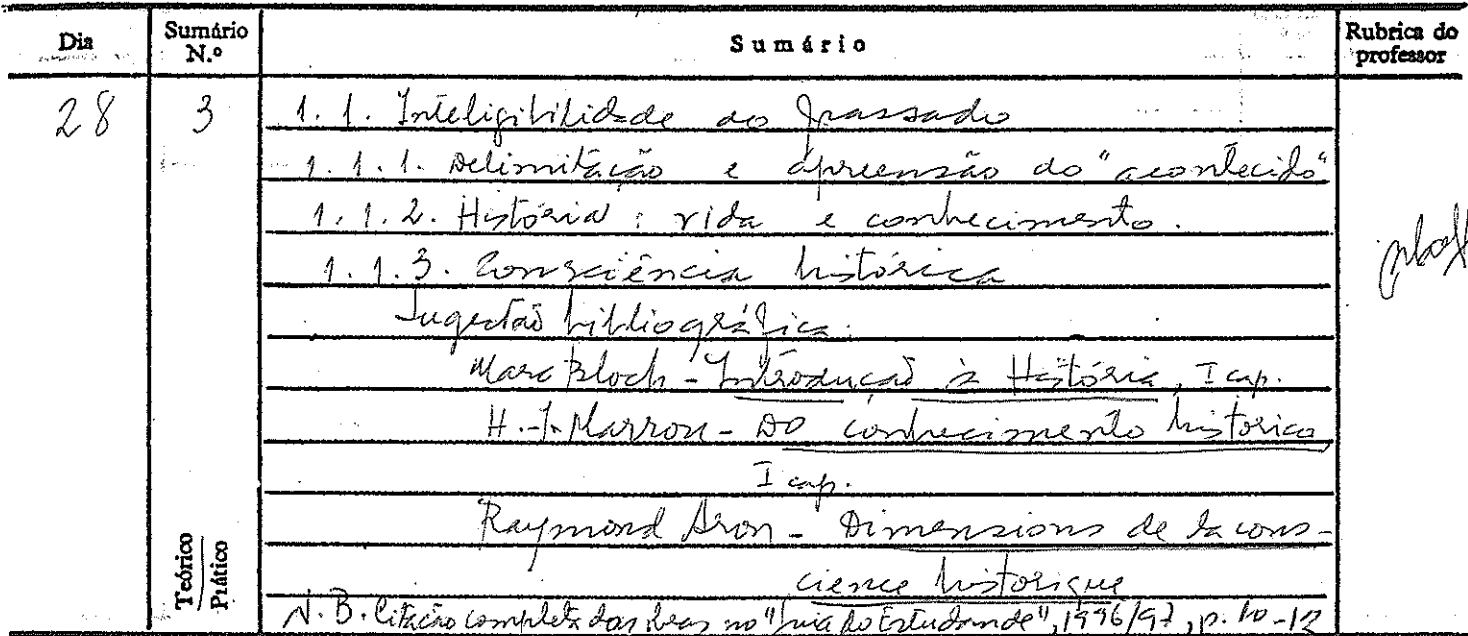 Dia Sumário N.º Sumário Rubrica do professor
28 3 1.1. Inteligibilidade do passado
1.1.1. Delimitação e apreensão do "acontecido"
1.1.2. História: vida e conhecimento.
1.1.3. Consciência histórica
Sugestão bibliográfica:
Marc Bloch - Introdução à História, I cap.
H.-I. Marrou - Do conhecimento histórico,
I cap.
Raymond Aron - Dimensions de la cons-
cience historique
Teórico
Prático
N.B. Citação completa das no "Guia do Estudante", 1996/97, p. 10-12